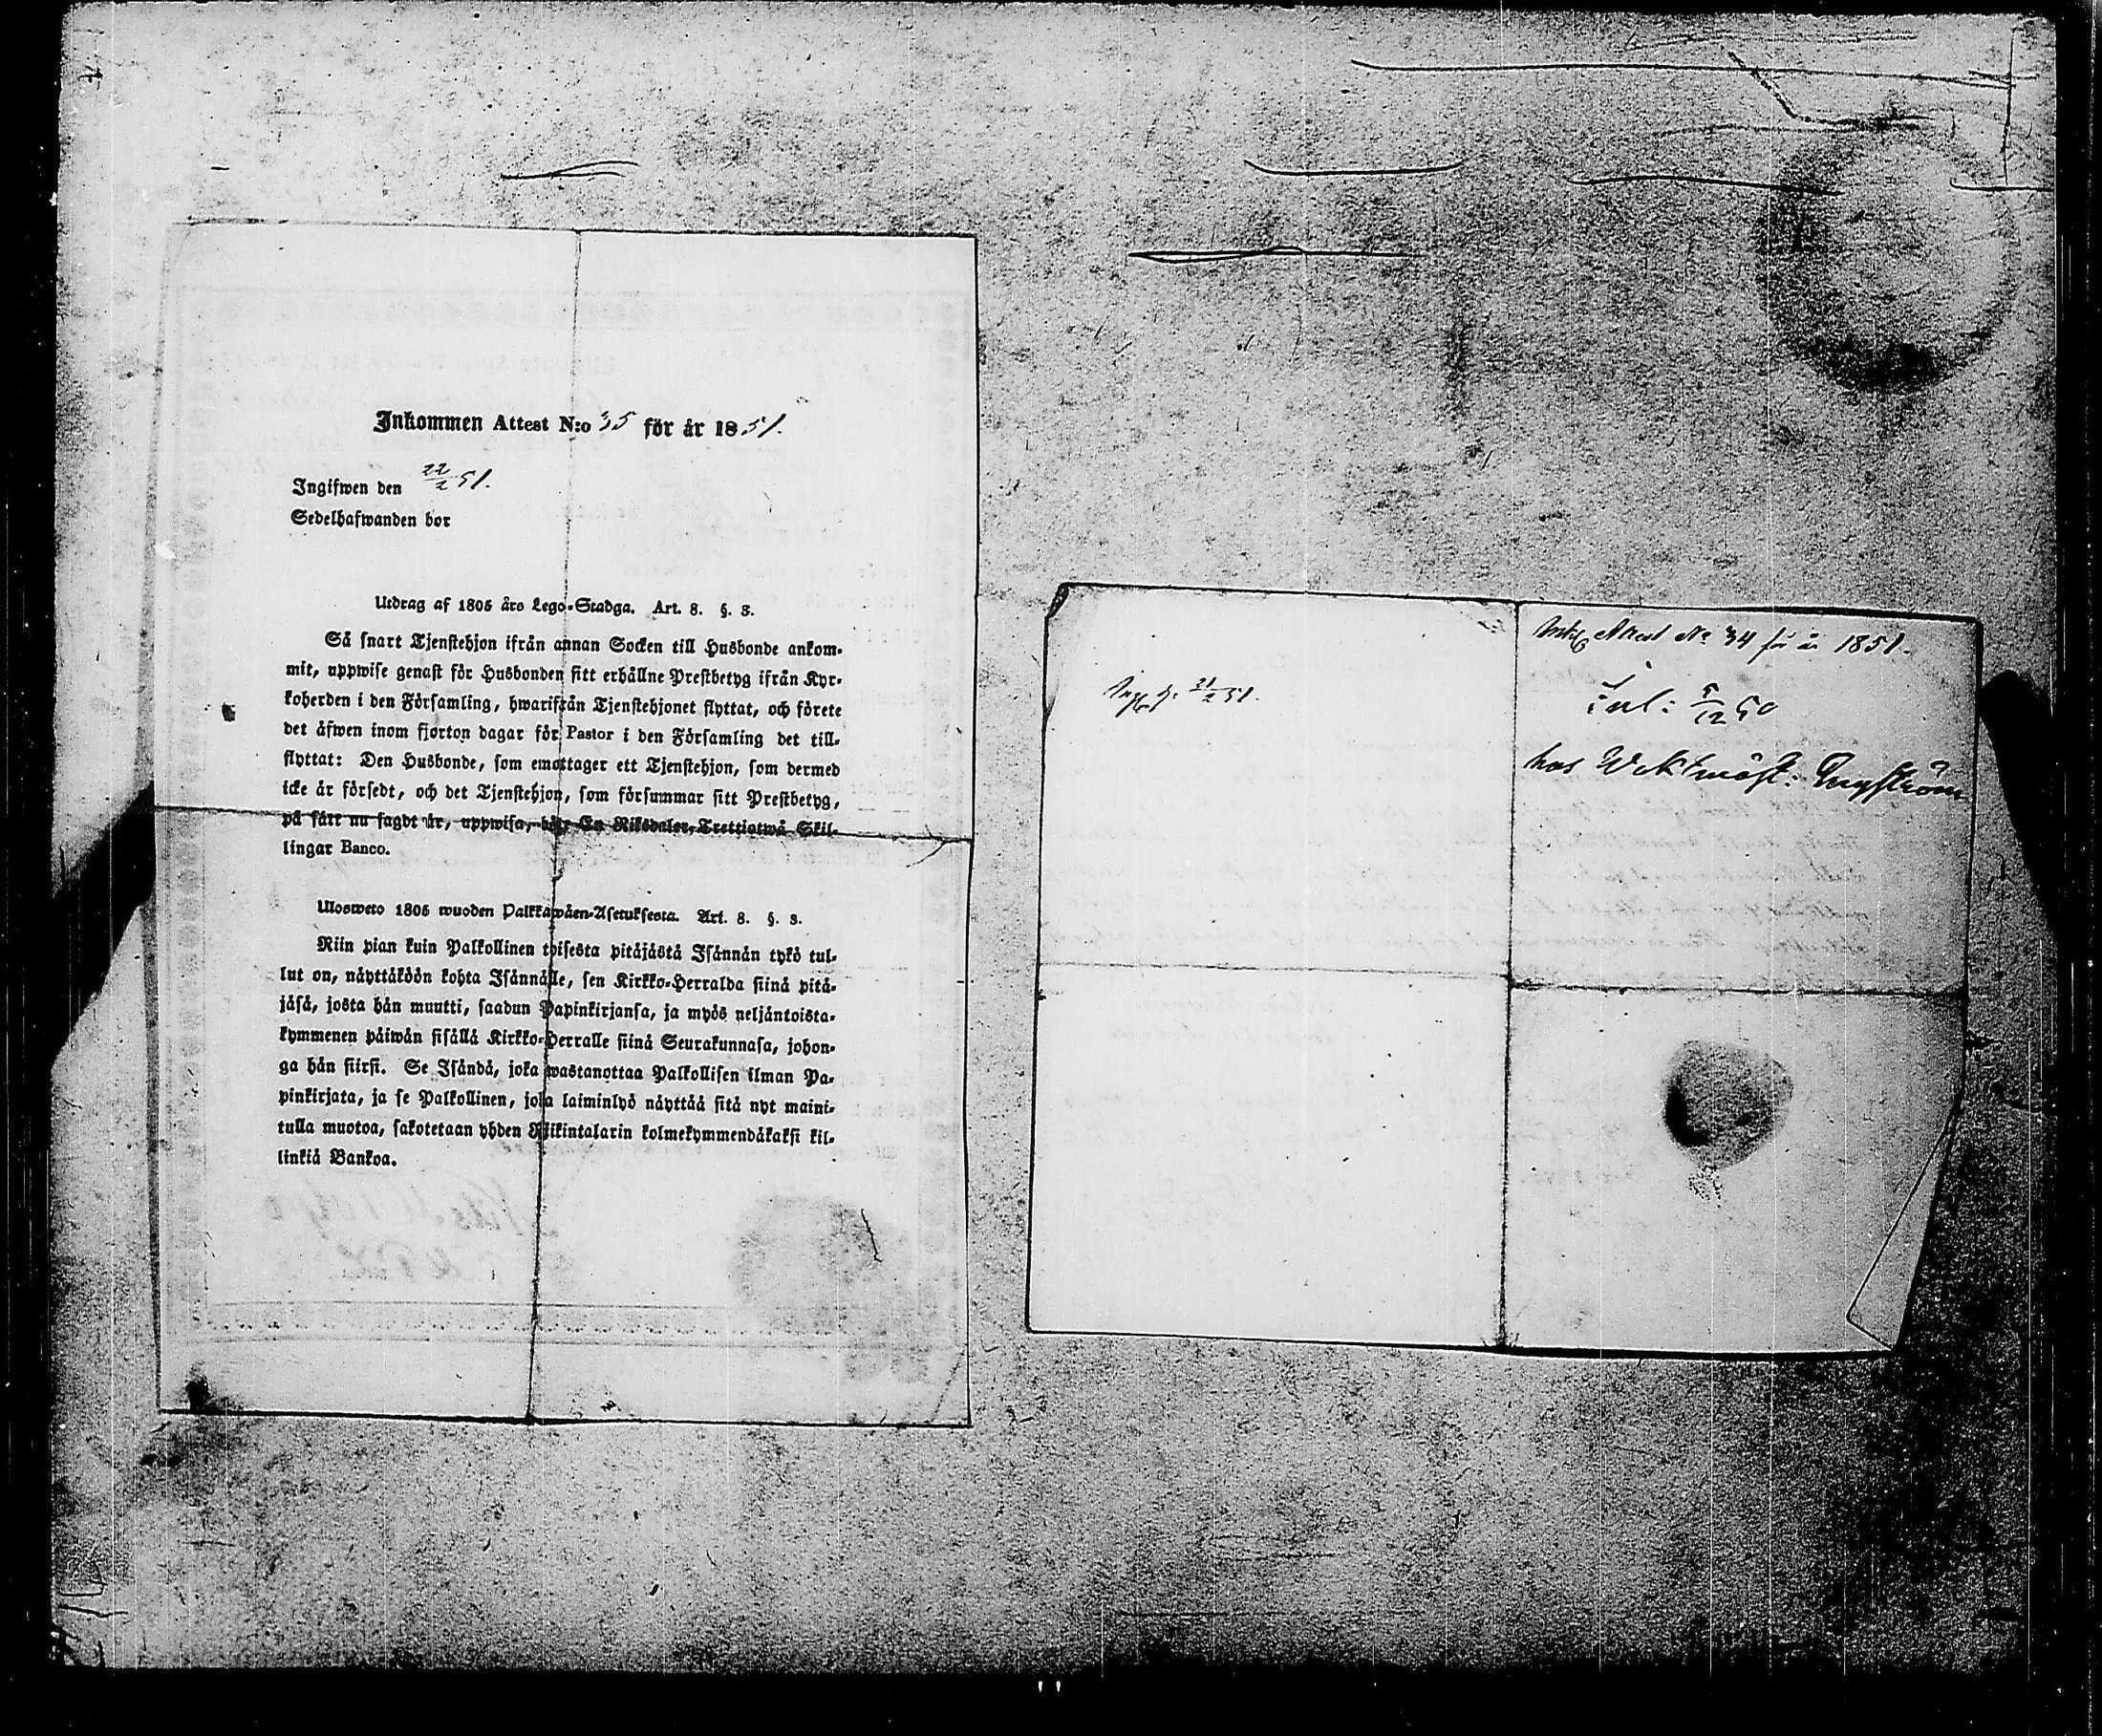 Inkommen Attest N:o 35 för år 1851.
Ingifwen den 22/2 51.
Sedelhafwanden bor
Utdrag af 1805 års Lego-Stadga. Art. 8. §. 3.
Så snart Tjenstehjon ifrån annan Socken till Husbonde ankom-
mit, uppwise genast för Husbonden sitt erhållne Prestbetyg ifrån Kyr-
koherden i den Församling, hwarifrån Tjenstehjonet flyttat, och förete
det äfwen inom fjorton dagar för Pastor i den Församling det till-
flyttat: Den Husbonde, som emottager ett Tjenstehjon, som dermed
icke är försedt, och det Tjenstehjon, som försummar sitt Prestbetyg,
på sätt nu sagdt är, uppwisa, böte En Riksdaler Trettiotwå Skil-
lingar Banco.
Ulosweto 1805 wuoden Palkkawäen-Asetuksesta. Art. 8. §. 3.
Niin pian kuin Palkollinen toisesta pitäjästä Isännän tykö tul-
lut on, näyttäköön kohta Isännälle, sen Kirkko-Herralda siinä pitä-
jäsä, josta hän muutti, saadun Papinkirjansa, ja myös neljäntoista-
kymmenen päiwän sisällä Kirkko-Herralle siinä Seurakunnasa, johon-
ga hän siirsi. Se Isändä, joka wastanottaa Palkollisen ilman Pa-
pinkirjata, ja se Palkollinen, joka laiminlyö näyttää sitä nyt maini-
tulla muotoa, sakotetaan yhden Riikintalarin kolmekymmendäkaksi kil-
linkiä Bankoa.
21/2 51.
Attest No 34 för år 1851.
5/12 50
hos Waktmäst: Engström